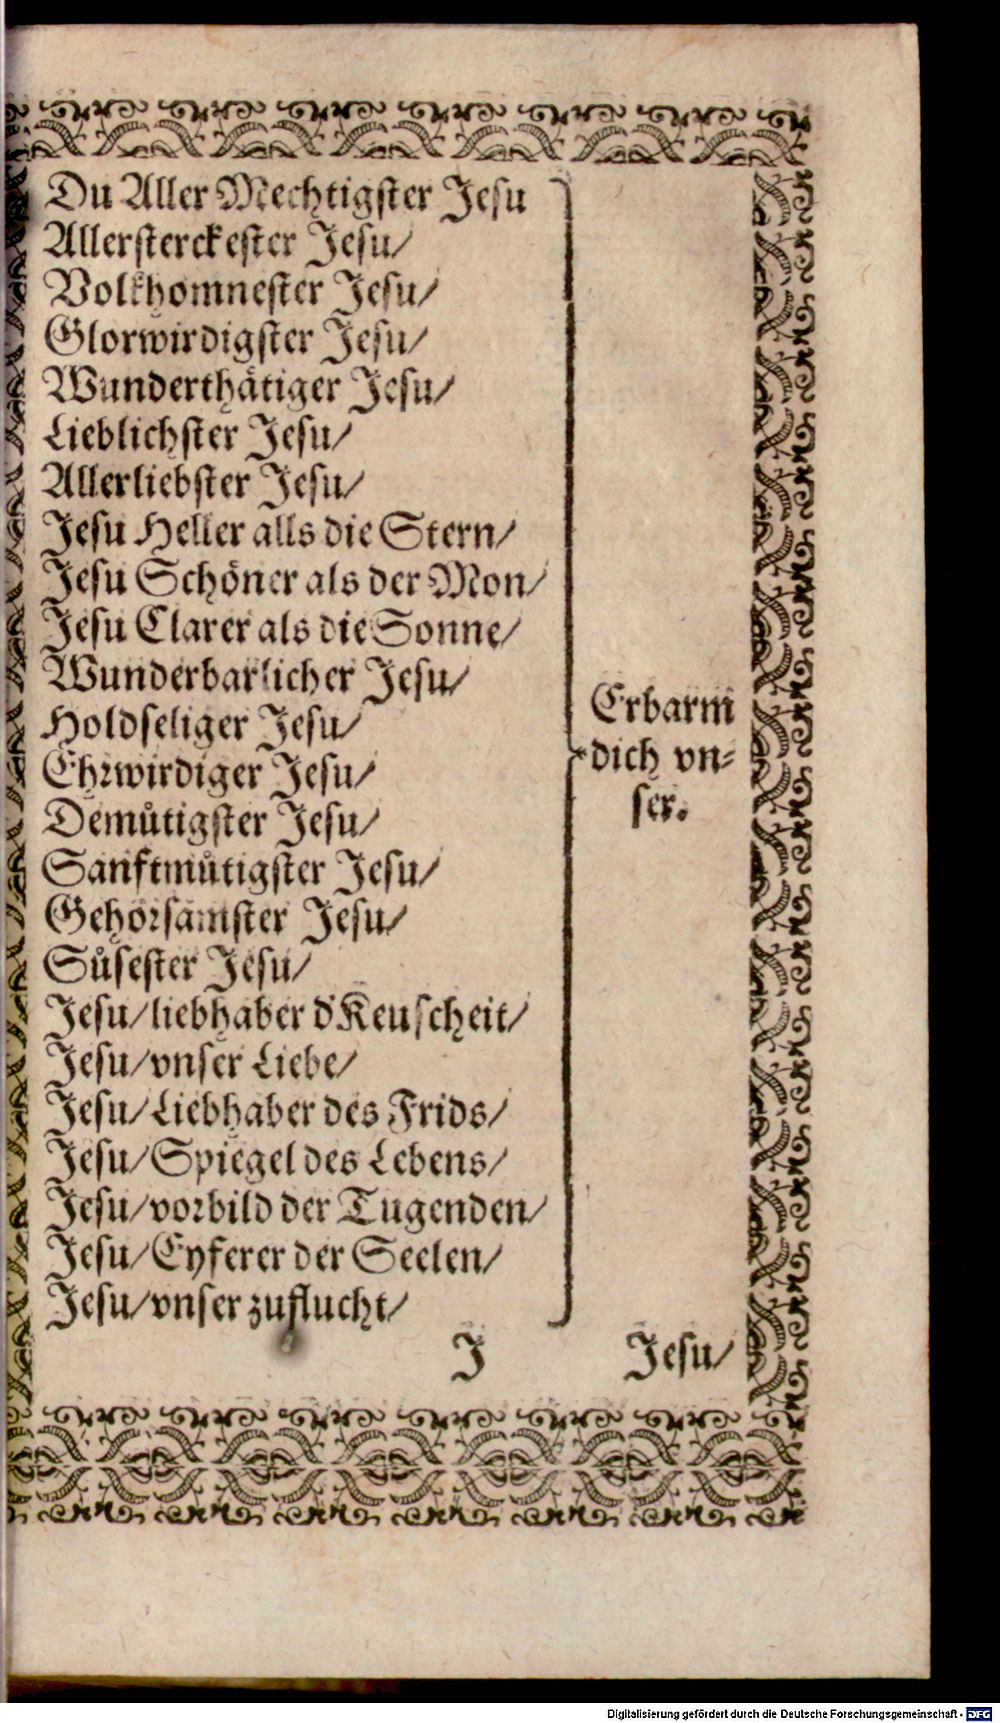 Du Aller Mechtigster Jesu
Allersterckester Jesu/
Volkhomnester Jesu/
Glorwirdigster Jesu/
Wunderthätiger Jesu/
Lieblichster Jesu/
Allerliebster Jesu/
Jesu Heller alls die Stern/
Jesu Schöner als der Mon/
Jesu Clarer als die Sonne/
Wunderbarlicher Jesu/
Holdseliger Jesu/
Ehrwirdiger Jesu/
Demůtigster Jesu/
Sanftmůtigster Jesu/
Gehorsamster Jesu/
Sůsester Jesu/
Jesu/liebhaber d'Keuscheit/
Jesu/vnser Liebe/
Jesu/Liebhaber des Frids/
Jesu/Spiegel des Lebens/
Jesu/vorbild der Tugenden/
Jesu/Eyferer der Seelen/
Jesu/vnser zuflucht/
Erbarm
dich vn-
ser.
J Jesu/
Digitalisierung gefördert durch die Deutsche Forschungsgemeinschaft - DFG